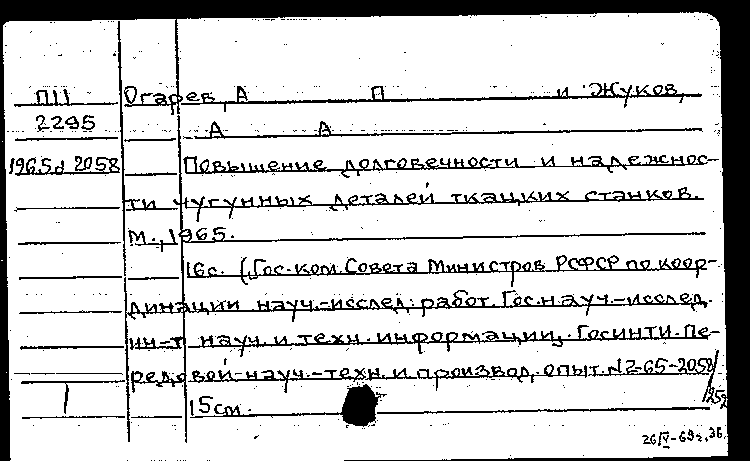 П11 Огарев, А П и Жуков,
2295 А А
1965д 2058 Повышение долговечности и надежнос-
ти чугунных деталей ткацких станков.
М., 1965.
16с. (Гос.ком.Совета Министров РСФСР по коор-
динации науч.-исслед. работ. Гос.науч.-исслед.
ин-т науч. и техн. информации. ГОСИНТИ. Пе-
редовой науч.-техн. и производ. опыт. №2-65-2058/
1 15см.
26/V-69г.